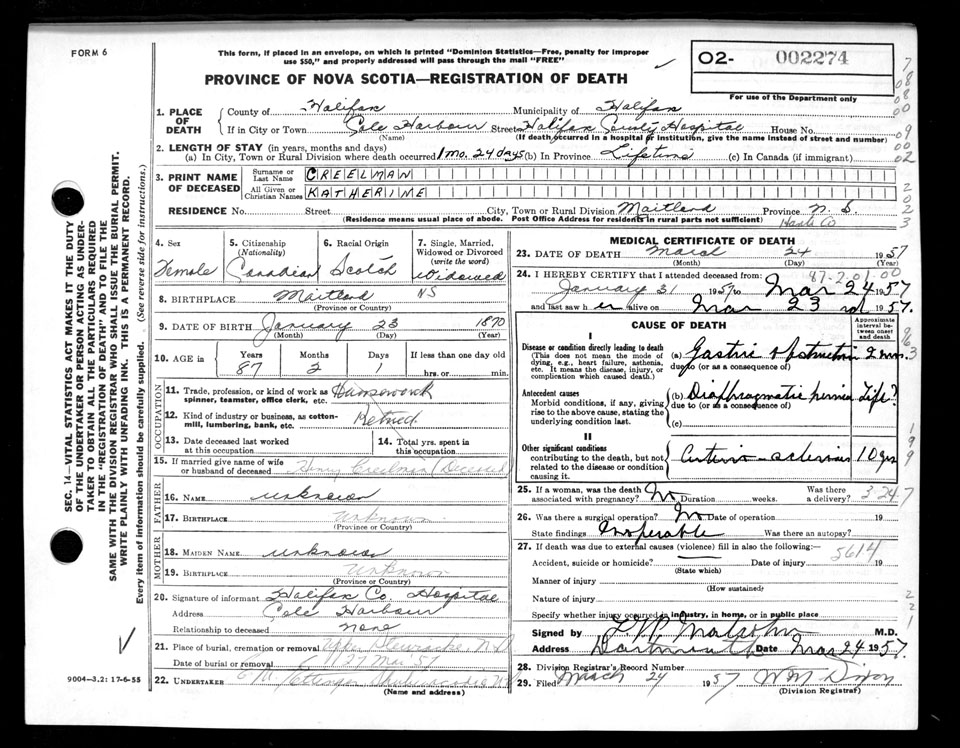 FORM 6
This form, if placed in an envelope, on which is printed "Dominion Statistics—Free, penalty for improper
use $50," and properly addressed will pass through the mail "FREE"
PROVINCE OF NOVA SCOTIA—REGISTRATION OF DEATH
02- 002274
For use of the Department only
1. PLACE OF DEATH
County of Halifax Municipality of Halifax
If in City or Town Cole Harbour Street Halifax County Hospital House No.
(Name) (If death occurred in a hospital or institution, give the name instead of street and number)
2. LENGTH OF STAY (in years, months and days)
(a) In City, Town or Rural Division where death occurred 1 mo. 24 days (b) In Province Lifetime (c) In Canada (if immigrant)
3. PRINT NAME OF DECEASED
Surname or Last Name CREELMAN
All Given or Christian Names KATHERINE
RESIDENCE No. Street City, Town or Rural Division Maitland Province N. S.
(Residence means usual place of abode. Post Office Address for residents in rural parts not sufficient) Hants Co
4. Sex Female
5. Citizenship (Nationality) Canadian
6. Racial Origin Scotch
7. Single, Married, Widowed or Divorced (write the word) Widowed
8. BIRTHPLACE Maitland NS
(Province or Country)
9. DATE OF BIRTH January 23 1870
(Month) (Day) (Year)
10. AGE in Years Months Days If less than one day
87 2 1 hrs. or min.
OCCUPATION
11. Trade, profession, or kind of work as spinner, teamster, office clerk, etc. Housework
12. Kind of industry or business, as cotton-mill, lumbering, bank, etc. Retired
13. Date deceased last worked at this occupation
14. Total yrs. spent in this occupation
15. If married give name of wife or husband of deceased Henry Creelman (Deceased)
FATHER
16. NAME unknown
17. BIRTHPLACE unknown
(Province or Country)
MOTHER
18. MAIDEN NAME unknown
19. BIRTHPLACE unknown
(Province or Country)
20. Signature of informant Halifax Co. Hospital
Address Cole Harbour
Relationship to deceased none
21. Place of burial, cremation or removal Upper Stewiacke, N.S
Date of burial or removal 27 Mar 57
22. UNDERTAKER
(Name and address)
9004-3.2: 17-6-55
MEDICAL CERTIFICATE OF DEATH
23. DATE OF DEATH March 24 1957
(Month) (Day) (Year)
24. I HEREBY CERTIFY that I attended deceased from:
87-2-01-00
January 31 1957 to Mar 24 1957
and last saw h er alive on Mar 23 1957.
CAUSE OF DEATH
Approximate interval between onset and death
I
Disease or condition directly leading to death
(This does not mean the mode of dying, e.g., heart failure, asthenia, etc. It means the disease, injury, or complication which caused death.)
(a) Gastric obstruction 2 mos.
due to (or as a consequence of)
Antecedent causes
Morbid conditions, if any, giving rise to the above cause, stating the underlying condition last.
(b) Diaphragmatic hernia Life?
due to (or as a consequence of)
(c)
II
Other significant conditions
contributing to the death, but not related to the disease or condition causing it.
Arterio-sclerosis 10 yrs
25. If a woman, was the death associated with pregnancy? No Duration weeks. Was there a delivery?
3-24-7
26. Was there a surgical operation? No Date of operation 19
State findings Inoperable Was there an autopsy?
27. If death was due to external causes (violence) fill in also the following:—
5614
Accident, suicide or homicide? Date of injury 19
(State which)
Manner of injury
(How sustained)
Nature of injury
Specify whether injury occurred in industry, in home, or in public place
Signed by M.D.
Address Dartmouth Date Mar 24 1957.
28. Division Registrar's Record Number
29. Filed March 24 1957
(Division Registrar)
SEC. 14—VITAL STATISTICS ACT MAKES IT THE DUTY
OF THE UNDERTAKER OR PERSON ACTING AS UNDER-
TAKER TO OBTAIN ALL THE PARTICULARS REQUIRED
IN THE "REGISTRATION OF DEATH" AND TO FILE THE
SAME WITH THE DIVISION REGISTRAR WHO SHALL ISSUE THE BURIAL PERMIT.
WRITE PLAINLY WITH UNFADING INK. THIS IS A PERMANENT RECORD.
Every item of information should be carefully supplied. (See reverse side for instructions.)